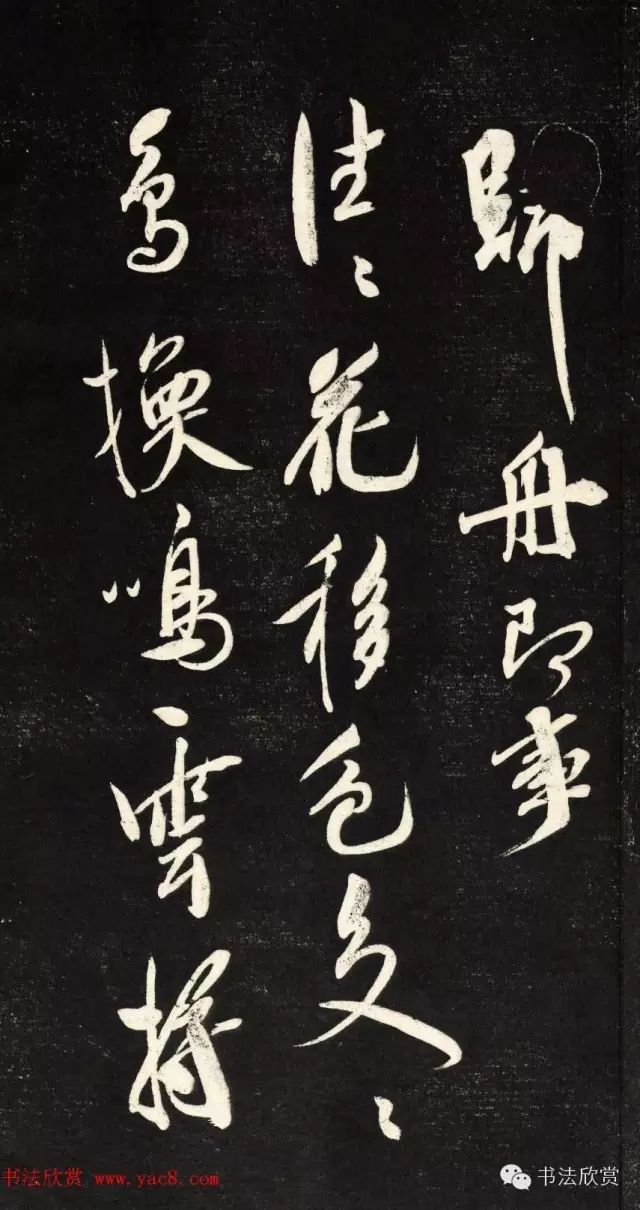 歸舟即事
往〻花移色交〻
鳥換鳴雲
书法欣赏 www.yac8.com
书法欣赏